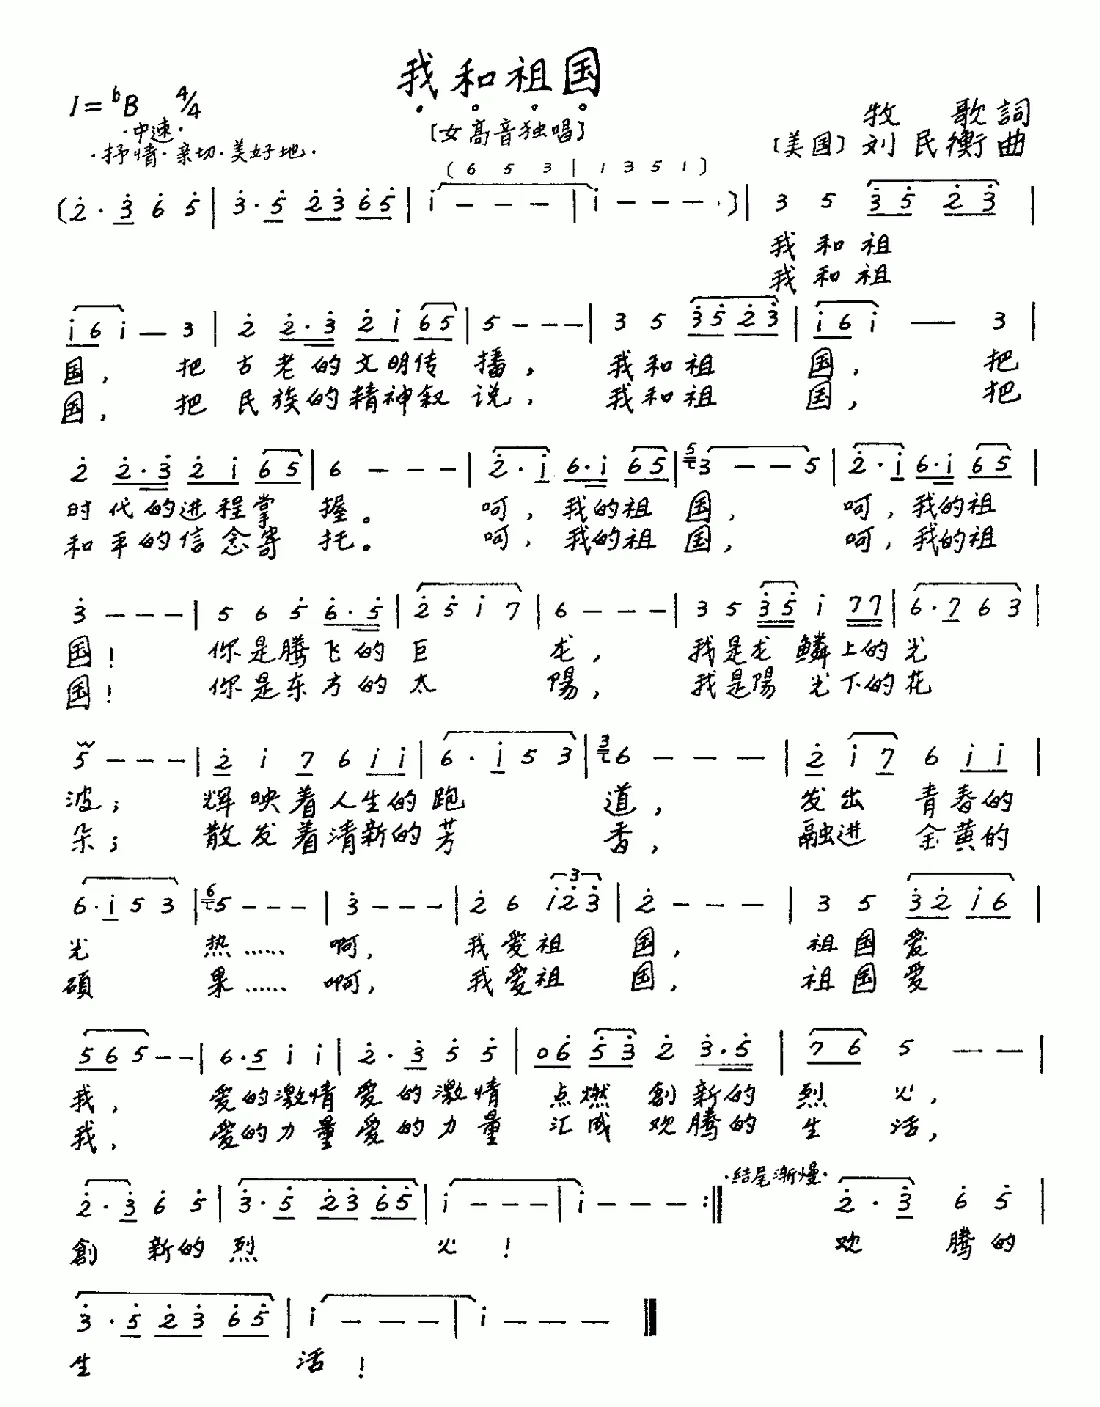 我和祖国
1=♭B 4/4
·中速·
·抒情·亲切·美好地·
〔女高音独唱〕
牧 歌 詞
〔美国〕刘民衡 曲
(6 5 3 | 1 3 5 1)
(2· 3 6 5 | 3·5 23 65 | i - - - | i - - - ) | 3 5 35 23 |
我和祖
我和祖
i6i — 3 | 2 2·3 2i 65 | 5 - - - | 3 5 35 23 | i6i — 3 |
国，把古老的文明传播，我和祖国，把
国，把民族的精神叙说，我和祖国，把
2 2·3 2i 65 | 6 - - - | 2·i 6·i 65 | 3 - - 5 | 2·i 6·i 65 |
时代的进程掌握。呵，我的祖国，呵，我的祖
和平的信念寄托。呵，我的祖国，呵，我的祖
3 - - - | 5 6 5 6·5 | 2 5 i 7 | 6 - - - | 3 5 35 i 77 | 6·7 6 3 |
国！你是腾飞的巨龙，我是龙鳞上的光
国！你是东方的太陽，我是陽光下的花
5 - - - | 2 i 7 6 i i | 6·i 5 3 | 6 - - - | 2 i 7 6 i i |
波；辉映着人生的跑道，发出青春的
朵；散发着清新的芳香，融进金黄的
6·i 5 3 | 5 - - - | 3 - - - | 2 6 i23 | 2 - - - | 3 5 32 i6 |
光热……啊，我爱祖国，祖国爱
碩果……啊，我爱祖国，祖国爱
565 - - | 6·5 i i | 2·3 5 5 | 06 53 2 3·5 | 76 5 - - |
我，爱的激情爱的激情点燃創新的烈火，
我，爱的力量爱的力量汇成欢腾的生活，
·結尾渐慢·
2·3 6 5 | 3·5 23 65 | i - - - | i - - - :‖ 2·3 6 5 |
創新的烈火！欢腾的
3·5 23 65 | i - - - | i - - - ‖
生活！